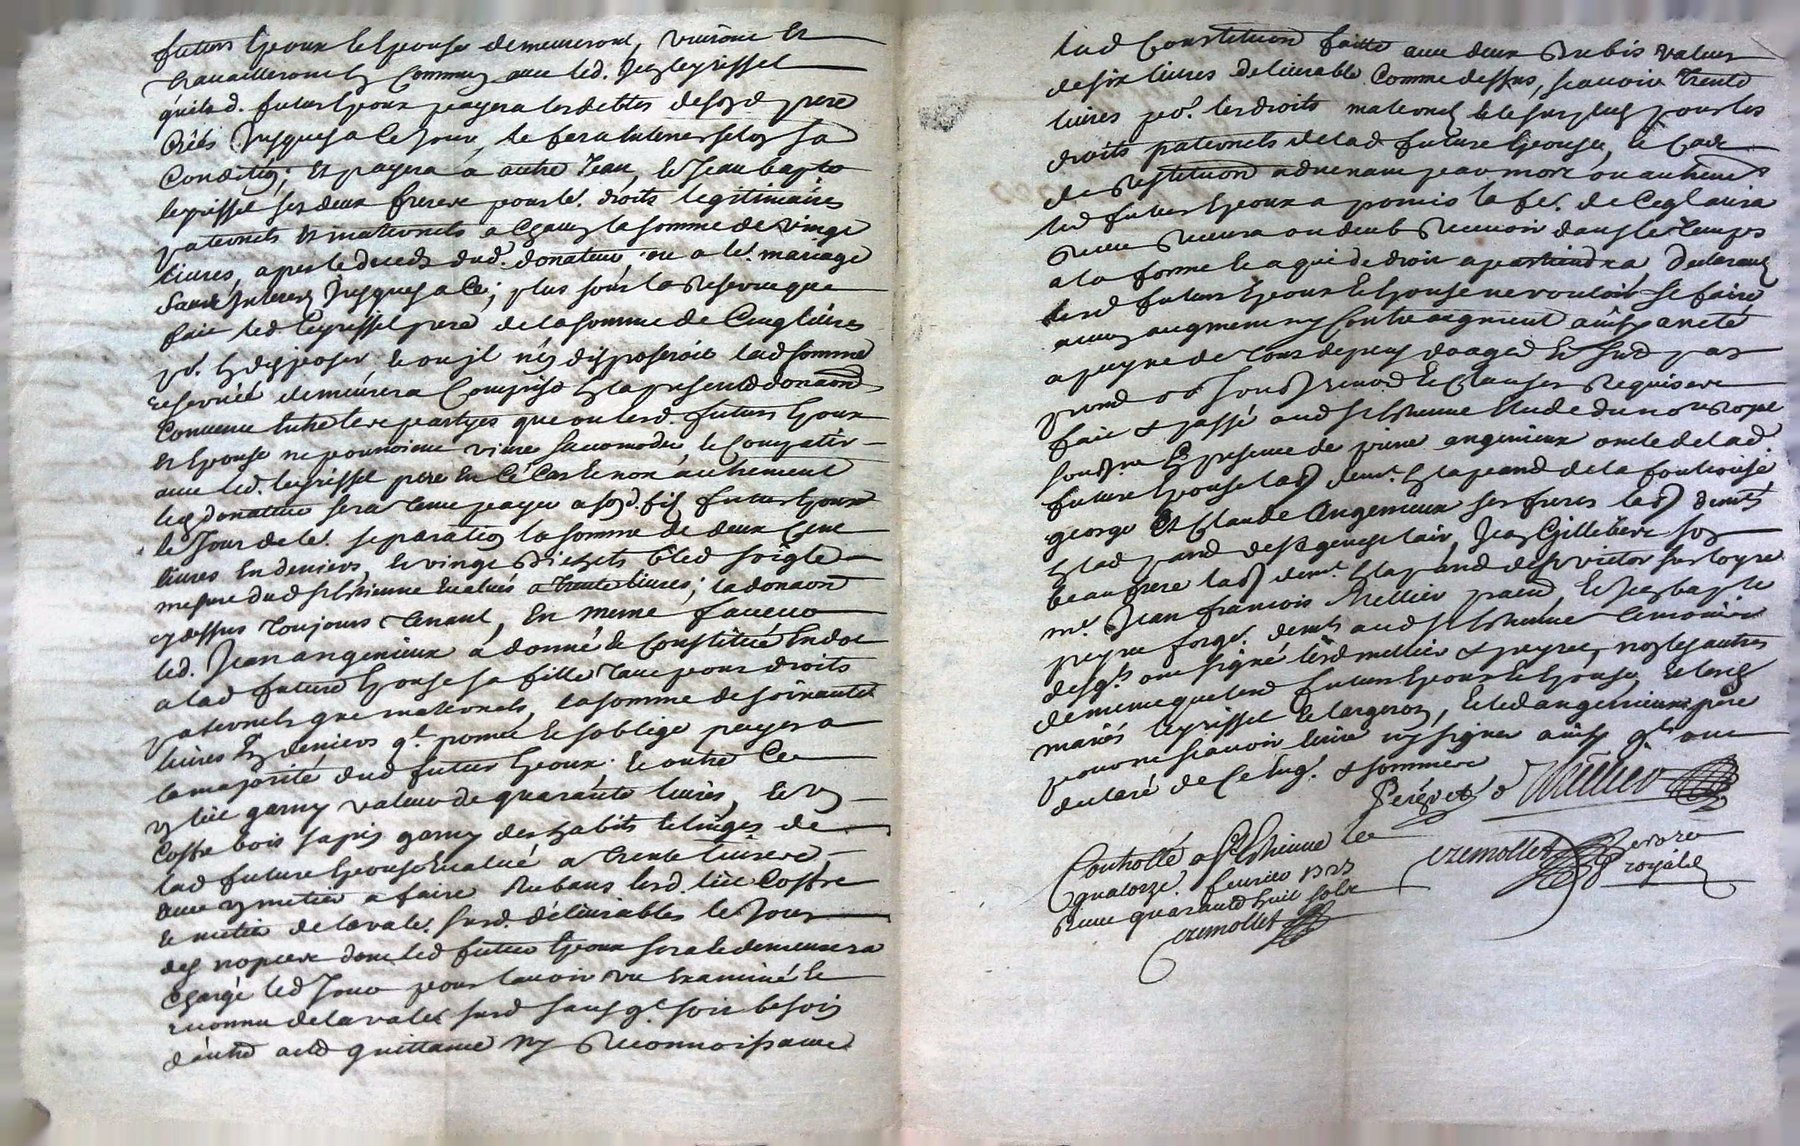 futurs Epoux et Epouse demeureront, vivront Et
travailleront En Commun avec led. Jean teyrissel
qu'iled. futur Epoux payera les debtes de sond pere
Crées Jusques a Ce Jour, le fera Enterrer selon sa
Condition; Et payera a autre Jean, et Jean bapte
teyrissel ses deux freres pour le. droits legitimaires
paternels et maternels a Chacun la somme de vingt
livres, apres le deceds dud. donateur, ou a le. mariage
sans Interest Jusques a Ce; plus sous la Reserve que
fait led teyrissel pere de la somme de Cinq livres
po. En disposer et ou il n'en disposeroit lad somme
reservée demeurera Comprise En la presente donaon
Convenu Entre les partyes que ou lesd. futurs Epoux
et Epouse ne pourroient vivre saccomoder et Compatir
avec led. teyrissel pere En Ce Cas et non autrement
led donateur sera tenu payer a sond. fils futur Epoux
le Jour de le. separation la somme de deux Cent
livres En deniers, et vingt Bichets bled soigle
mesure dud st Estienne Evalués a trente livres; la donaon
cydessus toujours tenant, En meme faveur
led. Jean angenieux a donné et Constitué En dot
a lad future Epouse sa fille tant pour droits
paternels que maternels, la somme de soixante
livres En deniers ql. promet et soblige payer a
la majorité dud futur Epoux. Et outre Ce
un lit garny valeur de quarante livres, et un
Coffre bois sapin garny des habits et linges de
lad future Epouse Evalué a trente livres,
avec un metier a faire Rubans lesd. lit Coffre
et metier de la vale. susd. délivrables le Jour
des nopces dont led futur Epoux sera et demeurera
Chargé led Jour pour lavoir vu Examiné et
reconnu de la valer susd sans ql soit besoin
d'autre acte quittance ny Reconnoissance
lad Constitution faitte avec deux Rubis valeur
de six livres delivrable Comme dessus, scavoir trente
livres po. les droits maternels et le surplus pour les
droits paternels de lad future Epouse, et Cas
de Restitution advenant par mort ou autrement
led futur Epoux a promis la fe. de Ce quil aura
receu Recevra ou deub Recevoir dans le temps
a la forme et a qui de droit apartiendra declarant
lesd futurs Epoux et Epouse ne vouloir se faire
aucun augment ny Contre augment ainsy areté
a peyne de tous depens domages et Intd par
promd obon soubsn renond et Clauses Requises
fait et passé aud st Estienne Etude du nore royal
soubsne En presence de pierre angenieux oncle de lad
future Epouse labr demt. En la parod de la fouillouse
george Et Claude Angenieux ses freres labr demts
En lad parod de st genest lair, Jean Gillibert son
beau frere labr demt En la parod de st victor sur loyre
me. Jean francois Mellier pratd, et Jean bapte
peyret forgr. demts aud st Estienne temoins
desqls ont signé lesd mellier et peyret, non les autres
de meme que lesd futurs Epoux et Epouse, et lesd
mariés teyrissel et largeron, et led angenieux pere
pour ne scavoir Ecrire ny signer ainsy qls ont
declaré de Ce Enq. et sommés
Peyret Mellier
Controllé a St Estienne le
quatorze. fevrier 1723
Receu quarante huit sols
tremollet
tremollet
nore
royal